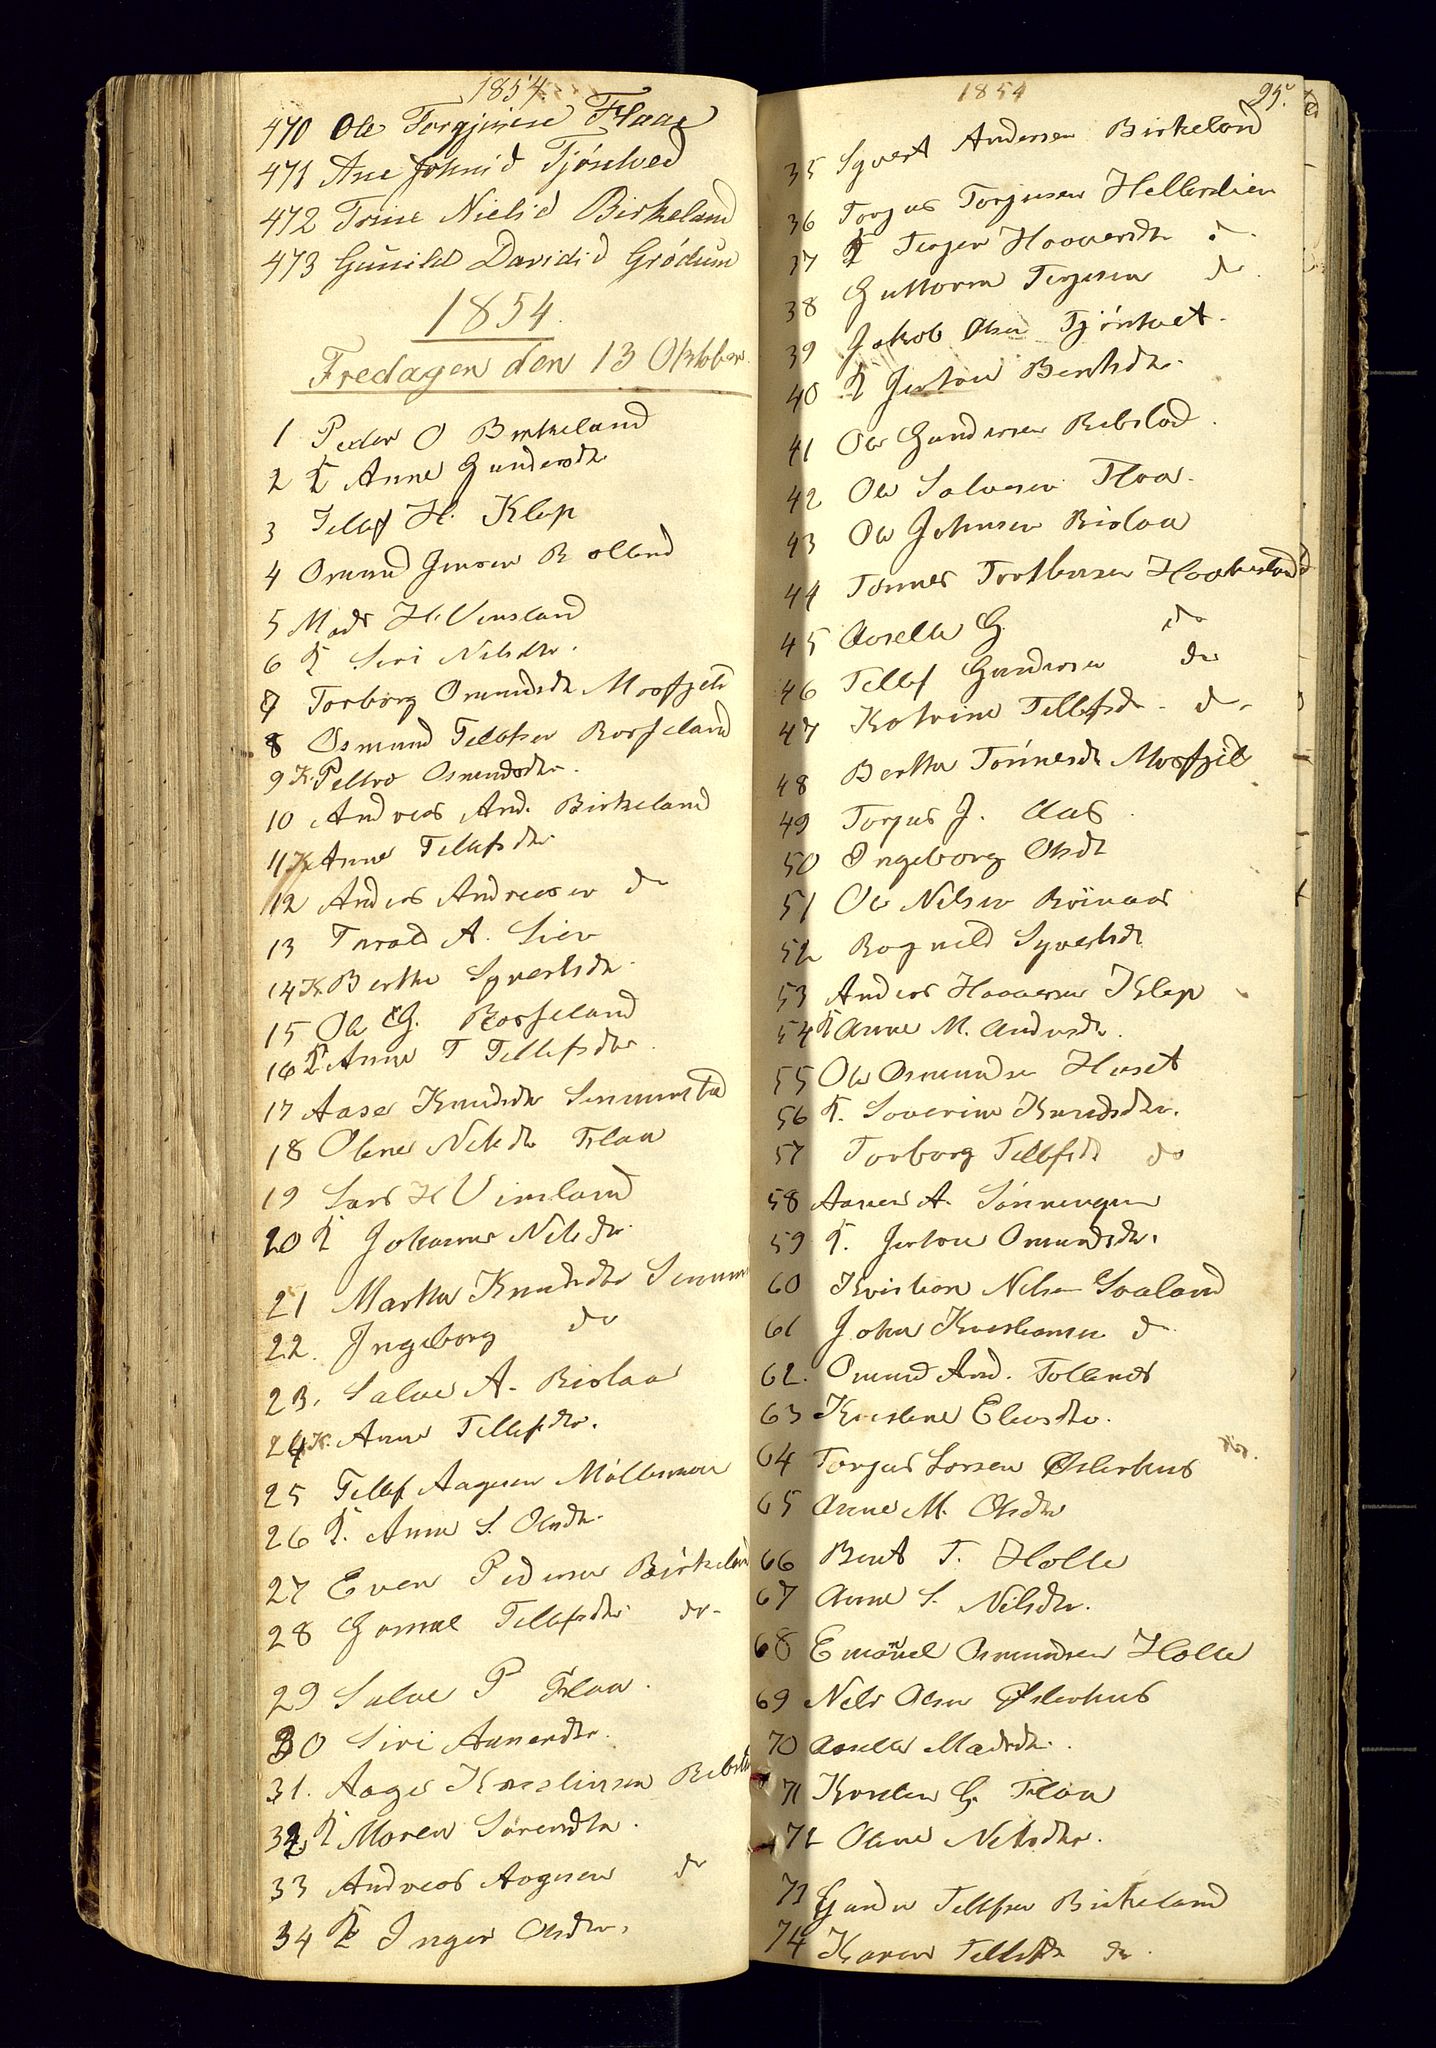 1854.
470 Ole Torgjusen Flaae
471 Ane Johnsd Tjónlved
472 Trine Nielsd Birkeland
473 Gunild Davidsd Gródum
1854.
Fredagen den 13 Oktober.
1 Peder O Birkeland
2 K Anne Gundersdtr
3 Tellef H. Klep
4 Omund Jensen
5 Mads H. Vensland
6 K Siri Nilsdtr.
7 Torborg Omundsdtr Mosfjeld
8 Osmund Tellefsen Rosseland
9 K. Pettro Osmundsdtr.
10 Andreas And. Birkeland
11 K Anne Tellefsdtr
12 Anders Andreasen do
13 Tarald A. Lien
14 K Berthe Syvertsdtr.
15 Ole G. Rosseland
16 K Anne T Tellefsdtr.
17 Aase Knudsdtr
18 Olene Nilsdtr Flaa
19 Lars H Vinsland
20 K Johanne Nilsdtr.
21 Marthe Knudsdtr
22. Ingeborg do
23. Salve A. Rislaa
24 K. Anne Tellefsdtr.
25 Tellef Aagesen Móllesmoen
26 K. Anne S. Olsdtr.
27 Even Pedersen Birkeland
28 Gomal Tellefsdtr do-
29 Salve P Flaa.
30 Siri Aanensdtr.
31. Aage Kristensen Rebstad
32 K Maren Sórensdtr.
33 Andreas Aagesen do
34 K Inger Olsdtr.
1854 95.
35 Syvert Andersen Birkeland
36 Torjus Torjusen Hellerslien
37 K Haaversdtr do
38 Guttorm Terjesen do.
39 Jakob Olsen Tjóntvet.
40 K Jertrue Bentsdtr.
41 Ole Gundersen Rebstad.
42 Ole Salvesen Flaa.
43 Ole Johnsen Rislaa
44 Tónnes Torkelsen
45 Aaselle G. do
46 Tellef Gundersen do
47 Katrine Tellefsdtr. do.
48 Berthe Tónnesdtr Mosfjeld
49 Torjus J. Aas.
50 Ingeborg Olsdt
51 Ole Nilsen
52 Ragnild Syvertsdt
53 Anders Haaversen Klep
54 K Anne M. Andersdtr.
55 Ole Osmundsen Huset
56 K. Soverine Knudsdtr.
57 Torborg Tellefsdt do
58 Aanen A. Sónningen
59 K. Jertrue Omundsdtr.
60 Kristian Nilsen Haaland
61 John Kristiansen do
62. Omund And. Tollands
63 Kristine Eliasdtr.
64 Torjus Larsen Óslerhus
65 Anne M. Olsdtr
66 Bent T. Holte
67 Anne S. Nilsdtr.
68 Emanuel Osmundsen Holte
69 Nils Olsen Óslerhus
70 Aaselle Madsdtr.
71 Karsten G. Flaa
72 Olene Nilsdtr.
73 Gunder Tellefsen Birkeland
74 Karen Tellefsdt do.